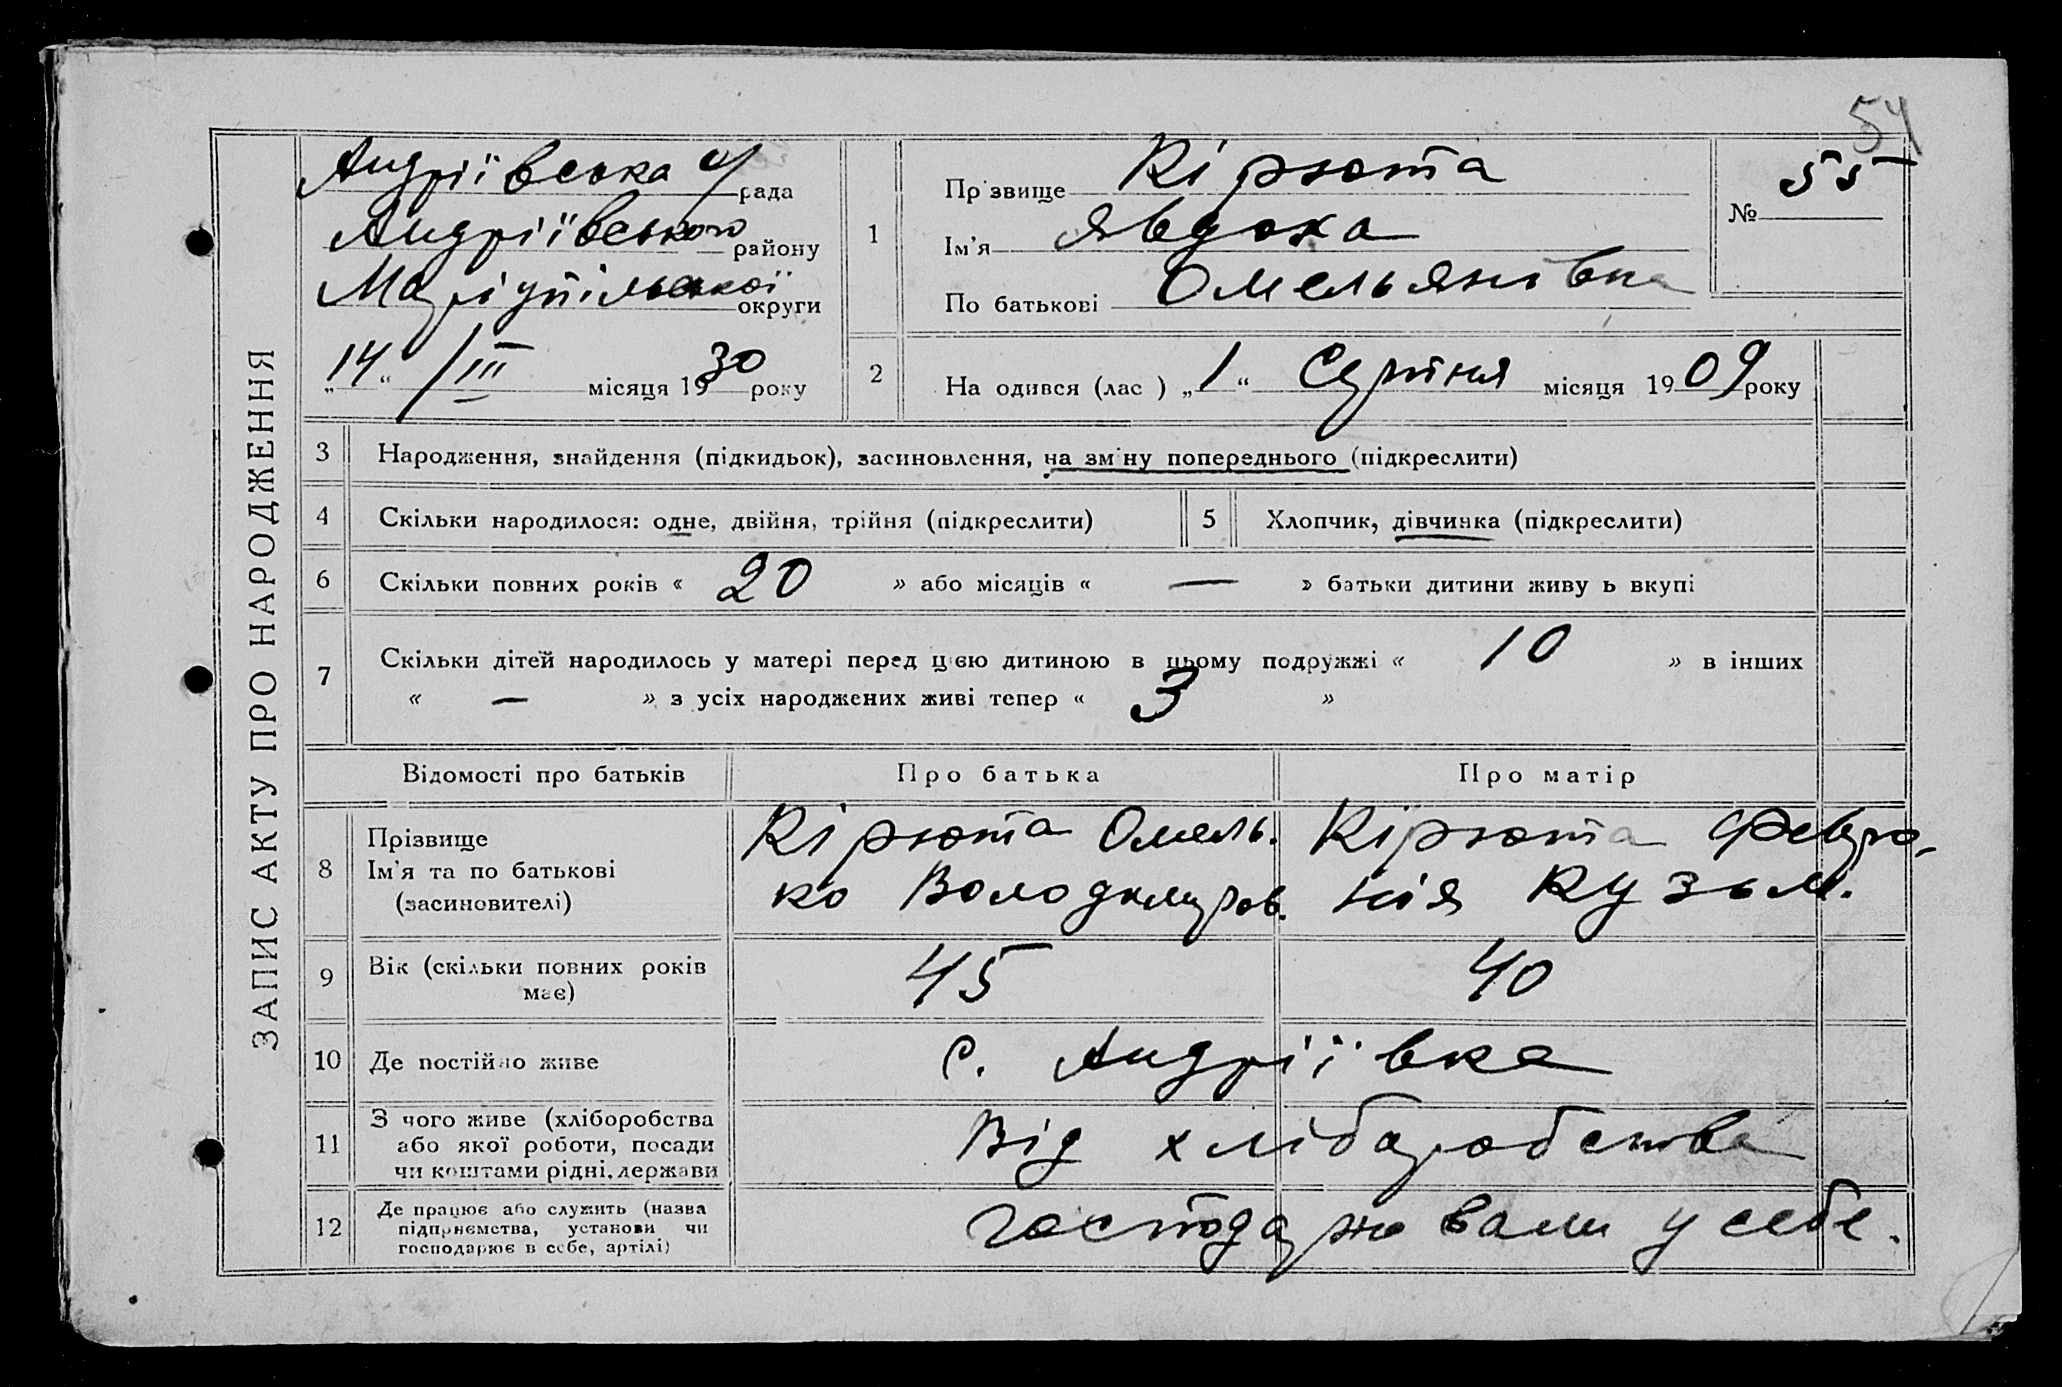 54
ЗАПИС АКТУ ПРО НАРОДЖЕННЯ
Андріївська рада
Андріївського району
Маріупільської округи
„14“ /III місяця 1930 року
1
Прізвище Кірюта
Ім'я Явдоха
По батькові Омельянівна
№ 55
2
На одився (лас ) „1“ Серпня місяця 1909 року
3 Народження, знайдення (підкидьок), засиновлення, на зміну попереднього (підкреслити)
4 Скільки народилося: одне, двійня, трійня (підкреслити)
5 Хлопчик, дівчинка (підкреслити)
6 Скільки повних років « 20 » або місяців « — » батьки дитини живу ь вкупі
7 Скільки дітей народилось у матері перед цією дитиною в цьому подружжі « 10 » в інших
« — » з усіх народжених живі тепер « 3 »
Відомості про батьків Про батька Про матір
8
Прізвище
Ім'я та по батькові
(засиновителі)
Кірюта Омель-
ко Володимиров.
Кірюта Февро-
нія Кузьм.
9 Вік (скільки повних років
має)
45 40
10 Де постійно живе с. Андріївка
11 З чого живе (хліборобства
або якої роботи, посади
чи коштами рідні, держави
Від хліборобства
12 Де працює або служить (назва
підприємства, установи чи
господарює в себе, артілі)
господарювали у себе.